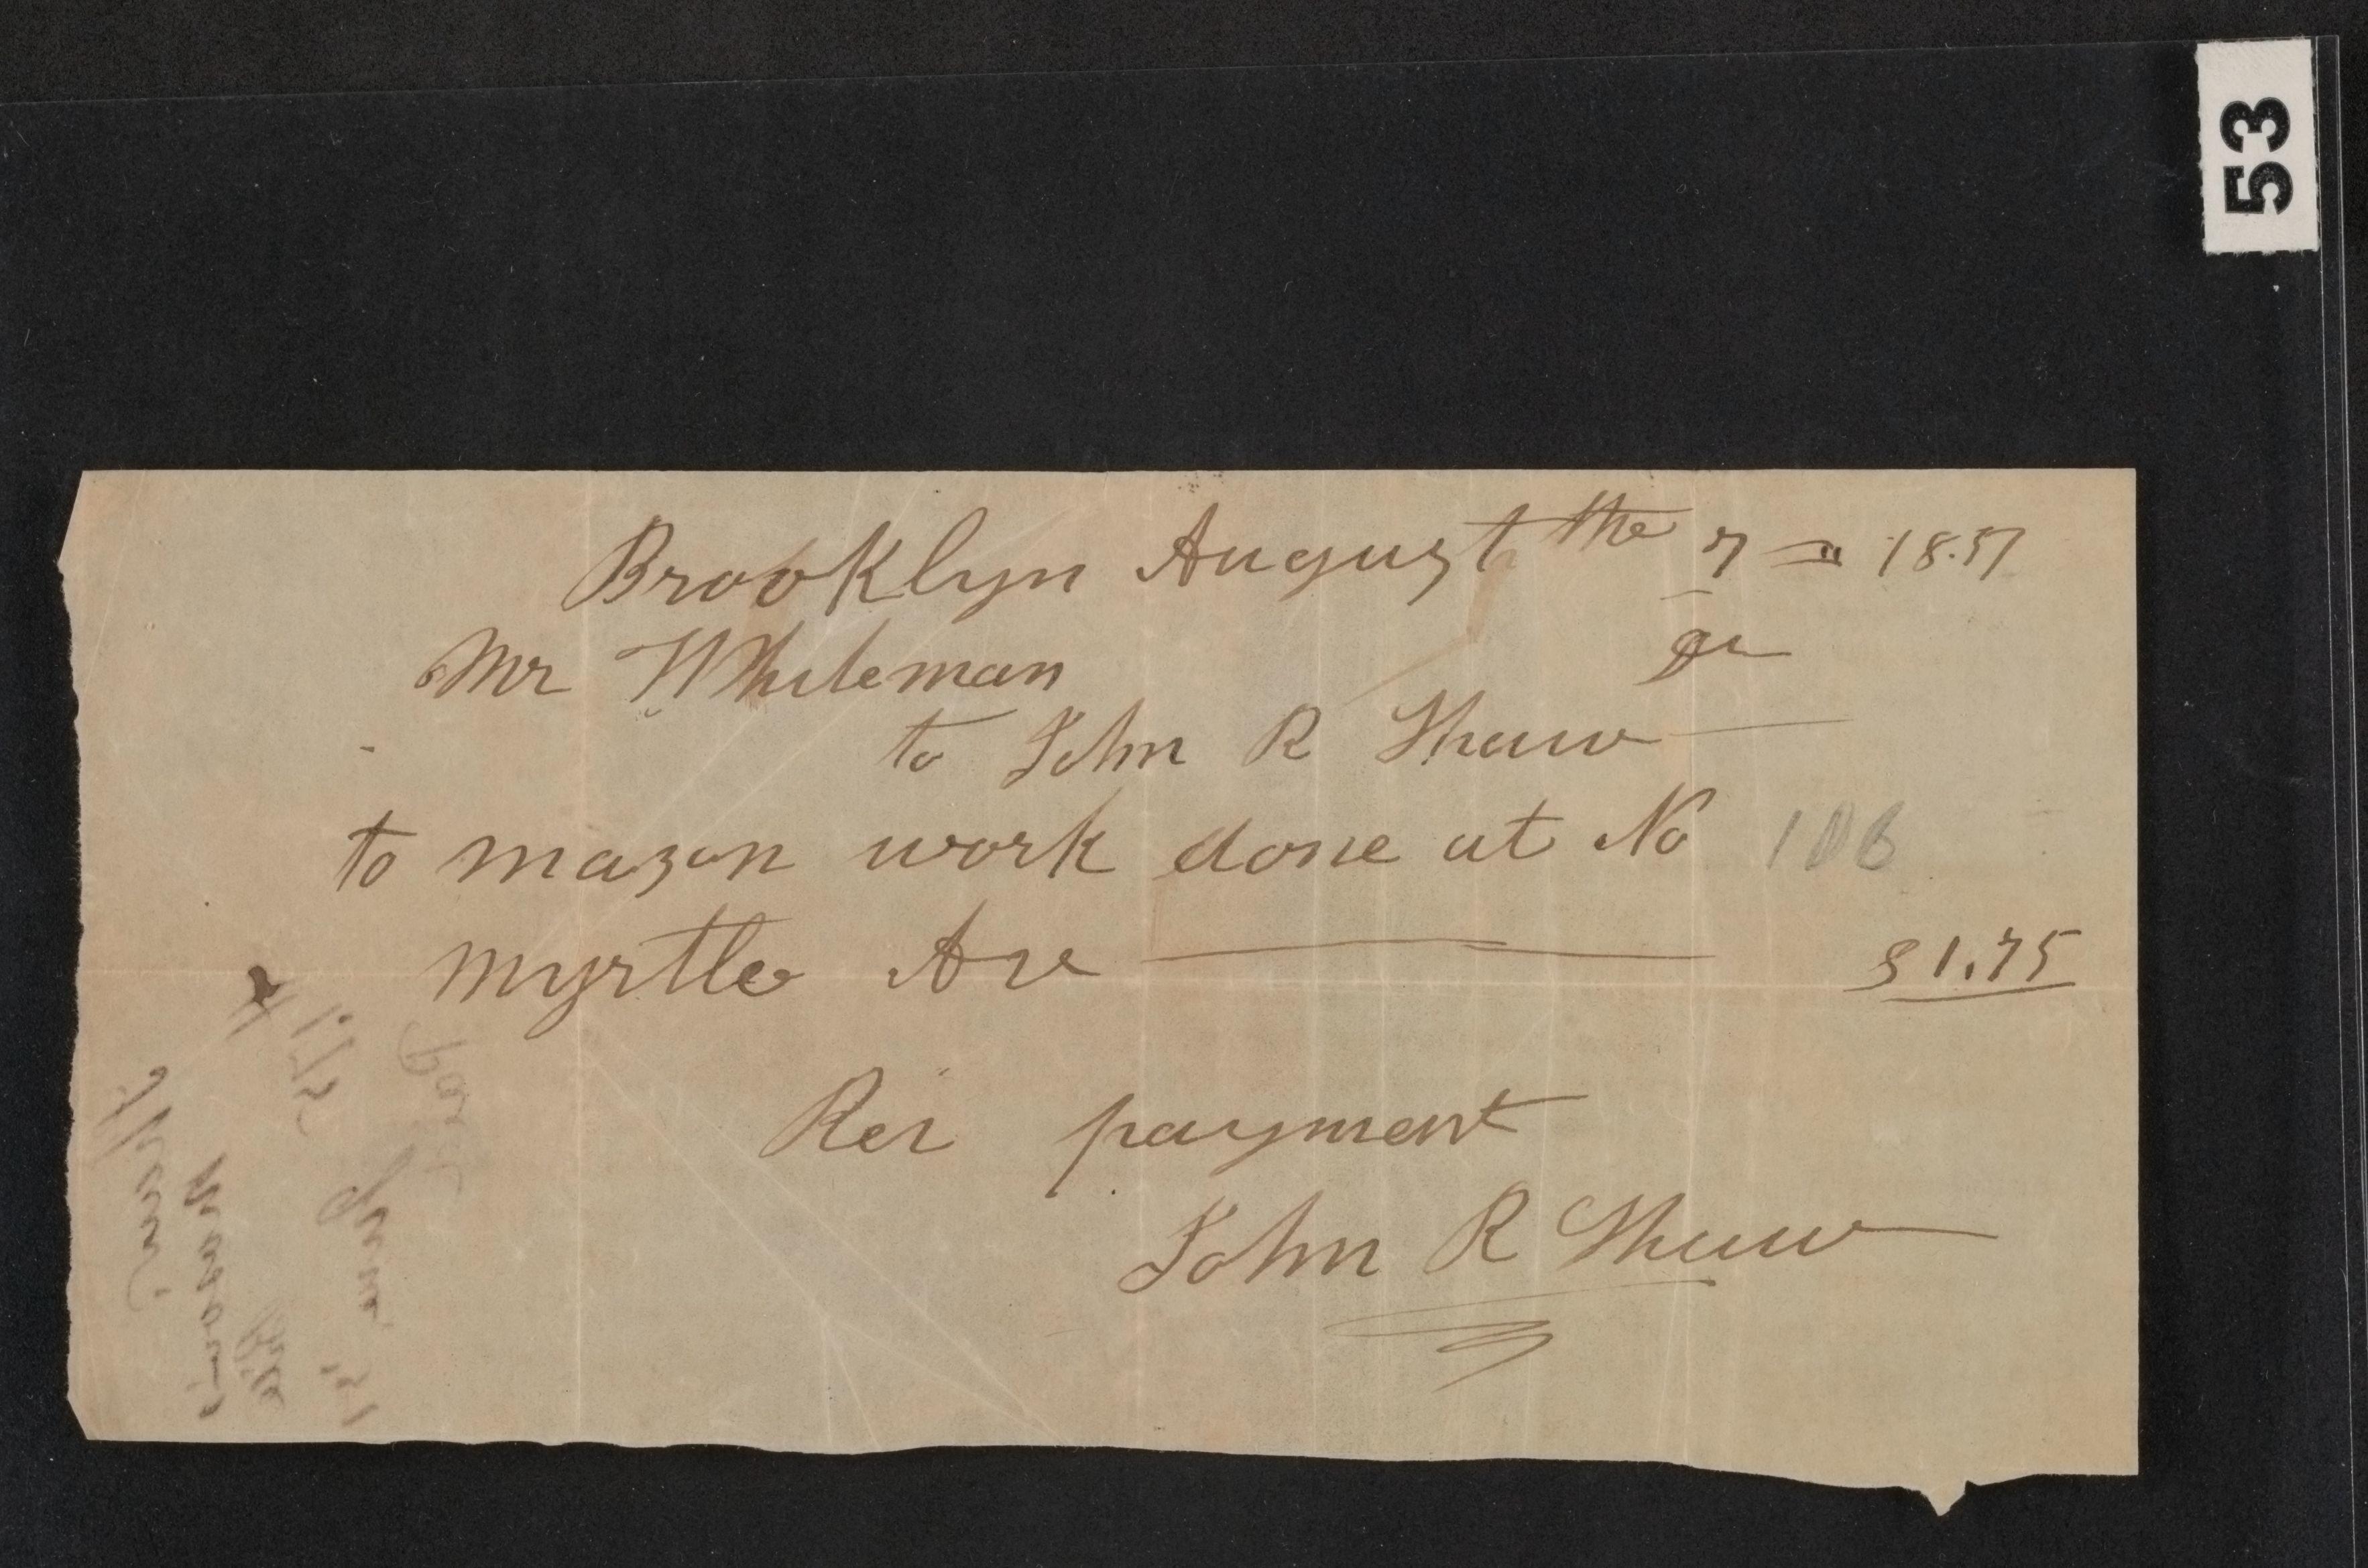 53
Brooklyn August the 7 = 1851
Mr Whiteman Dr
to John R Shaw
to mason work done at No 106
myrtle Ave $1.75
Rec payment
John R Shaw